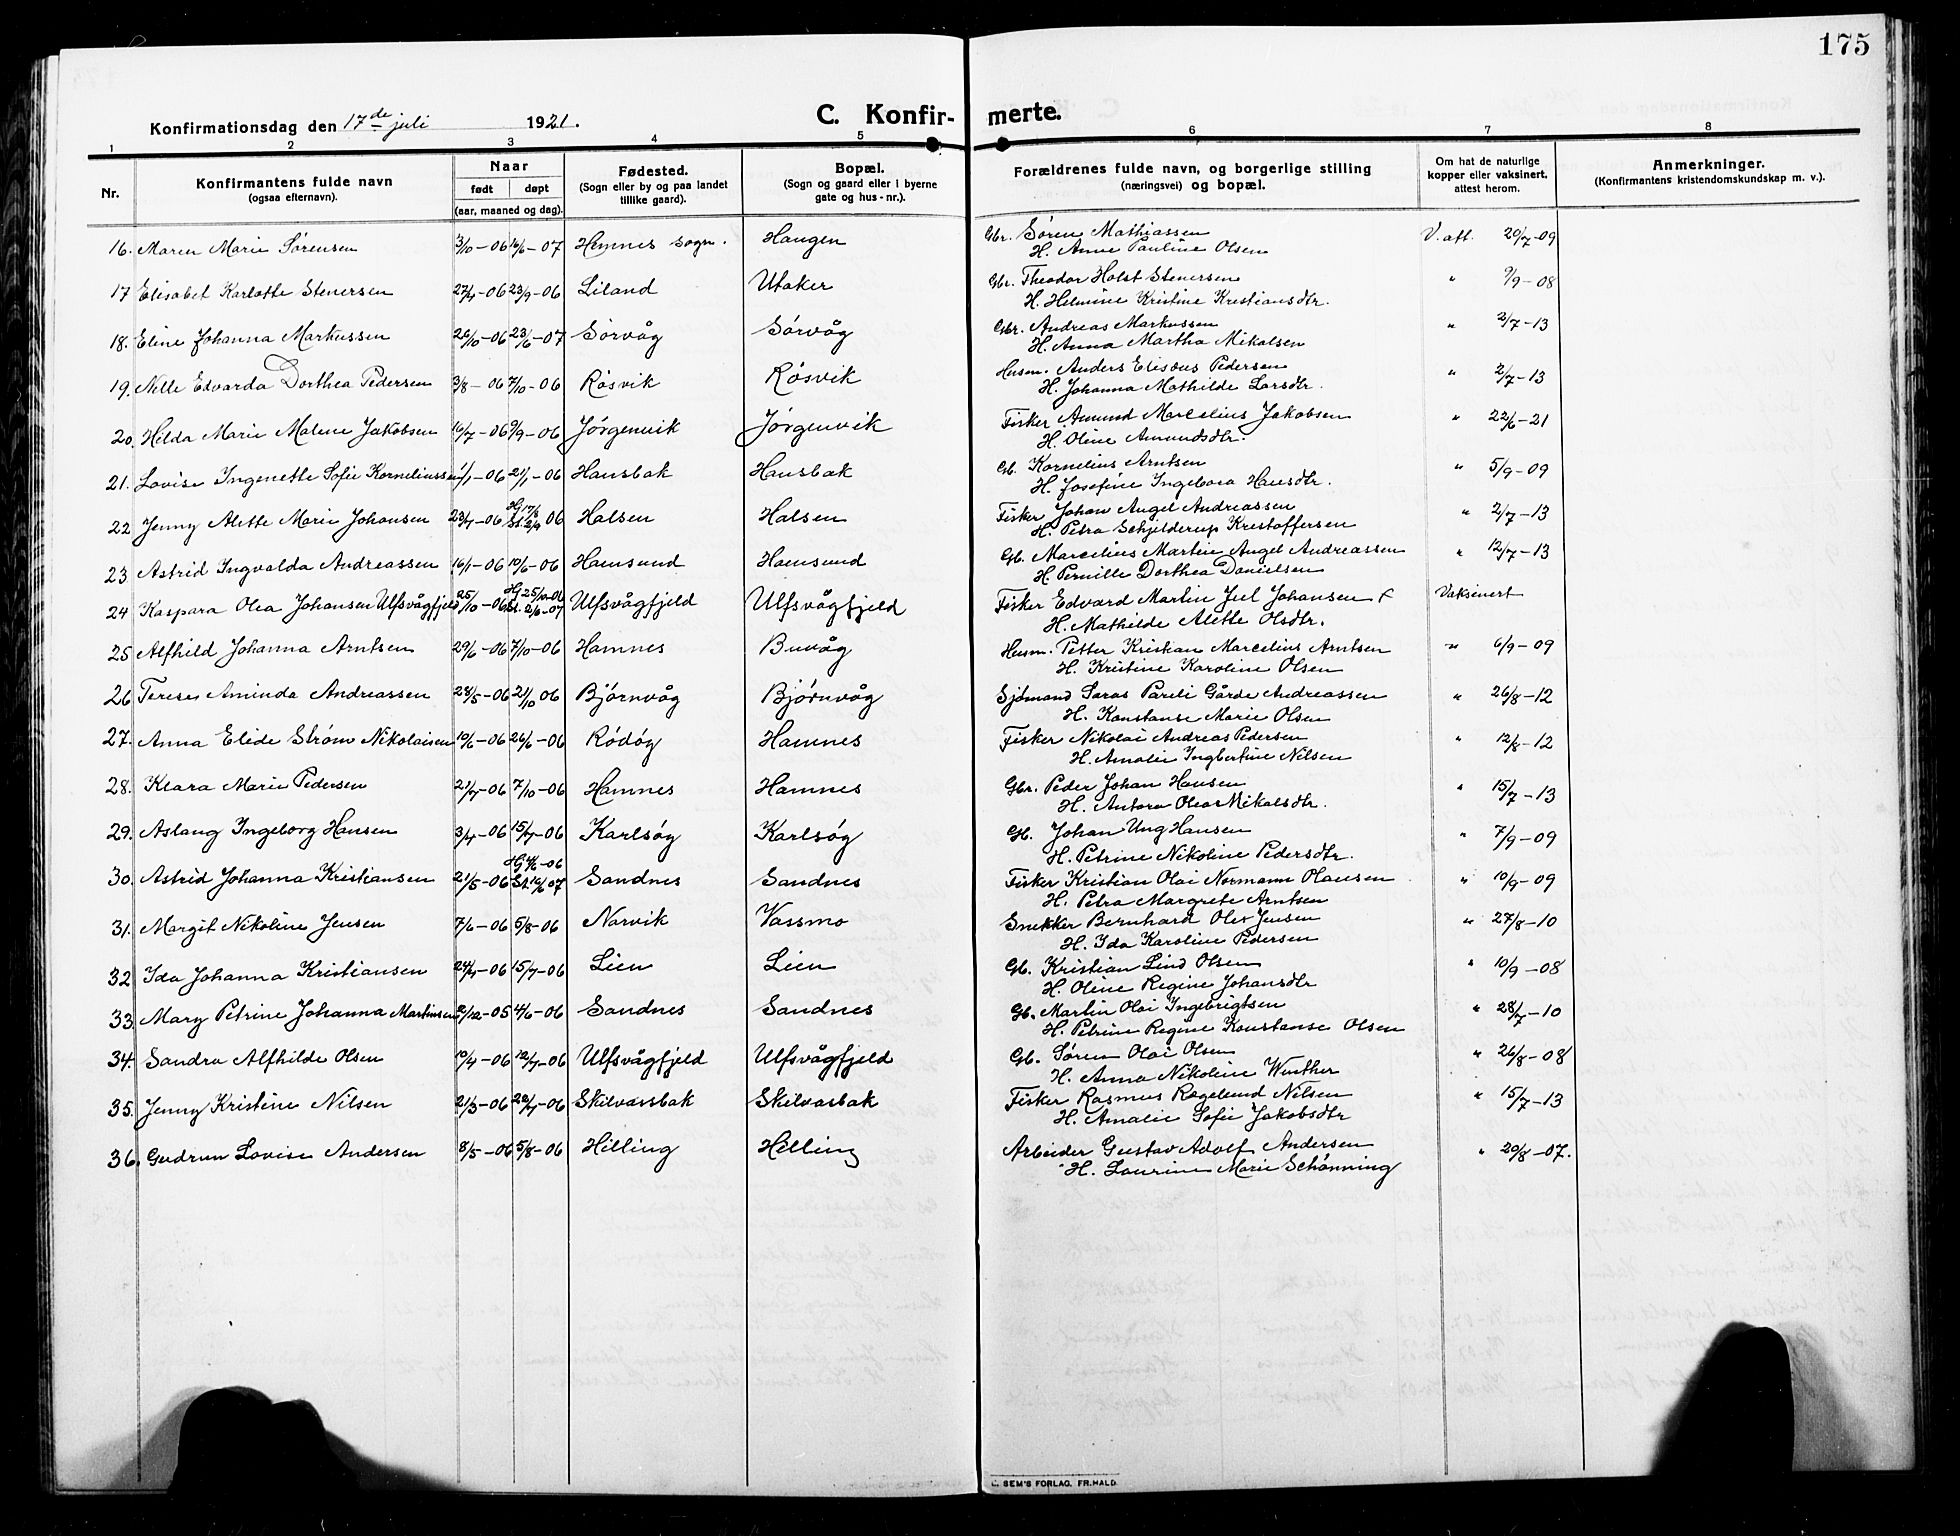 175
Konfirmationsdag den 17de juli 1921.
C. Konfirmerte.
1 2 3 4 5 6 7 8
Nr.
Konfirmantens fulde navn
(ogsaa efternavn).
Naar
født døpt
(aar, maaned og dag).
Fødested.
(Sogn eller by og paa landet
tillike gaard).
Bopæl.
(Sogn og gaard eller i byerne
gate og hus-nr.).
Forældrenes fulde navn, og borgerlige stilling
(næringsvei) og bopæl.
Om hat de naturlige
kopper eller vaksinert.
attest herom.
Anmerkninger.
(Konfirmantens kristendomskundskap m. v.).
16. Maren Marie Sørensen 3/10-06 16/6-07 Hemnes sogn. Haugen Gbr. Søren Mathiassen V. att. 20/7-09
H. Anne Pauline Olsen
17 Elisabet Karlotte Stenersen 27/4-06 23/9-06 Liland Utaker Gbr. Theodor Holst Stenersen " 9/9-08
H. Helmine Kristine Krestiansdtr.
18. Eline Johanna Markussen 26/10-06 23/6-07 Sørvåg Sørvåg Gbr. Andreas Markussen " 2/7-13
H. Anna Martha Mikalsen
19. Nelle Edvarda Dorthea Pedersen 3/8-06 7/10-06 Røsvik Røsvik Husm. Anders Elisæus Pedersen " 2/7-13
H. Johanna Mathilde Larsdtr.
20. Hilda Marie Malene Jakobsen 16/7-06 9/9-06 Jørgenvik Jørgenvik Fisker Amund Marcelius Jakobsen " 22/6-21
H. Oline Amundsdtr.
21. Lovise Ingenette Sofie Korneliussen 1/1-06 21/1-06 Hansbak Hansbak Gb. Kornelius Arntsen " 5/9-09
H. Josefine Ingebora Hansdtr.
22 Jenny Alette Marie Johansen 23/7-06 Hj 17/8 St. 2/9 06 Halsen Halsen Fisker Johan Angel Andreassen " 2/7-13
H. Petra Schjelderup Krestoffersen
23 Astrid Ingvalda Andreassen 16/1-06 10/6-06 Hamsund Hamsund Gb. Marcelius Martin Angel Andreassen " 12/7-13
H. Pernille Dorthea Danielsen
24 Kaspara Olea Johansen Ulfsvågfjeld 25/10-06 Hj 25/10-06 St. 2/6-07 Ulfsvågfjeld Ulfsvågfjeld Fisker Edvard Martin Juel Johansen f Vaksinert
H. Mathilde Alette Olsdtr.
25 Alfhild Johanna Arntsen 29/6-06 7/10-06 Hamnes Buvåg Husm. Petter Kristian Marcelius Arntsen " 6/9-09
H. Kristine Karoline Olsen
26 Terese Aminda Andreassen 28/5-06 21/10 06 Bjørnvåg Bjørnvåg Sjømand Saras Pareli Gårde Andreassen " 26/8-12
H. Konstanse Marie Olsen
27. Anna Elide Strøm Nikolaisen 10/6-06 26/6-06 Rødøy Hamnes Fisker Nikolai Andreas Pedersen " 12/8-12
H. Amalie Ingbertine Nilsen
28. Klara Marie Pedersen 21/7-06 7/10-06 Hamnes Hamnes Gbr. Peder Johan Hansen " 15/7-13
H. Antora Olea Mikalsdtr.
29. Aslaug Ingeborg Hansen 3/4-06 15/7-06 Karlsøy Karlsøy Gb. Johan Ung Hansen " 7/9-09
H. Petrine Nikoline Pedersdtr.
30. Astrid Johanna Kristiansen 21/5-06 Hj 4/6-06 St. 16/6 07 Sandnes Sandnes Fisker Kristian Olai Normann Olausen " 10/9-09
H. Petra Margrete Arntsen
31. Margit Nikoline Jensen 7/6-06 5/8-06 Narvik Vassmo Snekker Bernhard Olev Jensen " 27/8-10
H. Ida Karoline Pedersen
32 Ida Johanna Kristiansen 24/4-06 15/7-06 Lien Lien Gb. Kristian Lind Olsen " 10/9-08
H. Oline Regine Johansdtr
33. Mary Petrine Johanna Martinsen 2/12-05 4/6-06 Sandnes Sandnes Gb. Martin Olai Ingebrigtsen " 28/7-10
H. Petrine Regine Konstanse Olsen
34. Sandra Alfhilde Olsen 10/4-06 12/7-06 Ulfsvågfjeld Ulfsvågfjeld Gb. Søren Olai Olsen " 26/8-08
H. Anna Nikoline Winther
35. Jenny Kristine Nilsen 21/3-06 22/7-06 Skilvassbak Skilvasbak Fisker Rasmus Ragelund Nilsen " 15/7-13
H. Amalie Sofie Jakobsdtr
36. Gudrun Lovise Andersen 8/5-06 5/8-06 Hilling Helling Arbeider Gustav Adolf Andersen " 20/8-07.
H. Laurine Marie Schønning
SEM'S FORLAG. FR.HALD.